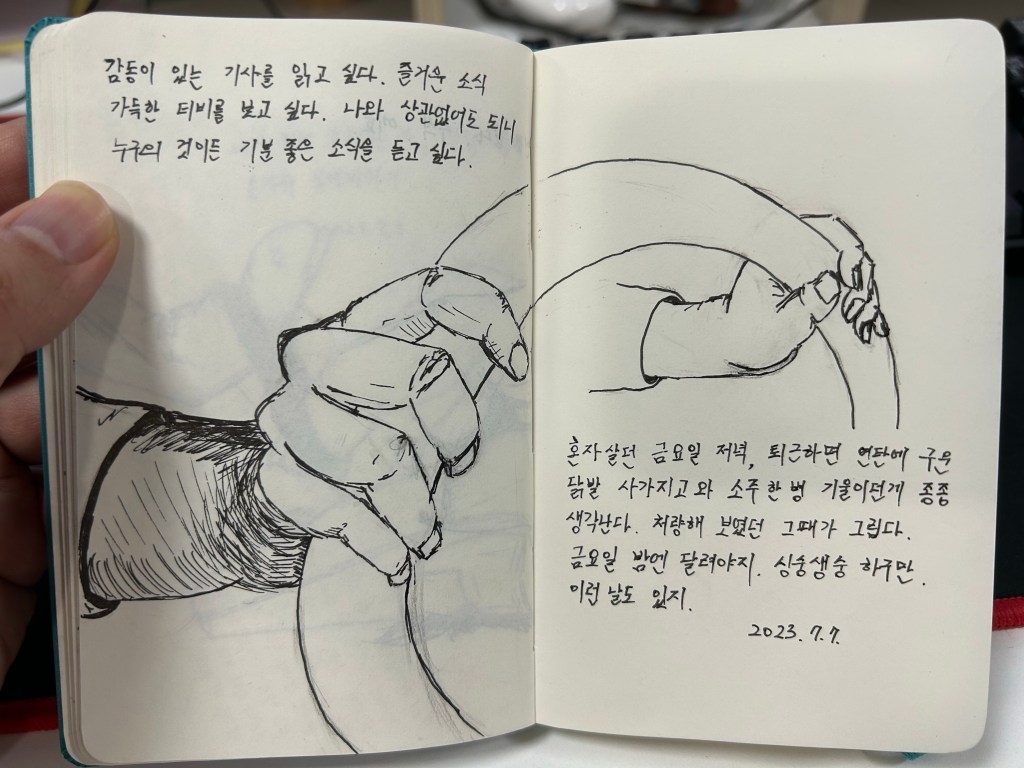 감동이 있는 기사를 읽고 싶다. 즐거운 소식
가득한 티비를 보고 싶다. 나와 상관없어도 되니
누구의 것이든 기분 좋은 소식을 듣고 싶다.
혼자살던 금요일 저녁, 퇴근하면 연탄에 구운
닭발 사가지고와 소주한병 기울이던게 종종
생각난다. 처량해 보였던 그때가 그립다.
금요일 밤엔 달려야지. 싱숭생숭 하구만.
이런 날도 있지.
2023. 7. 7.